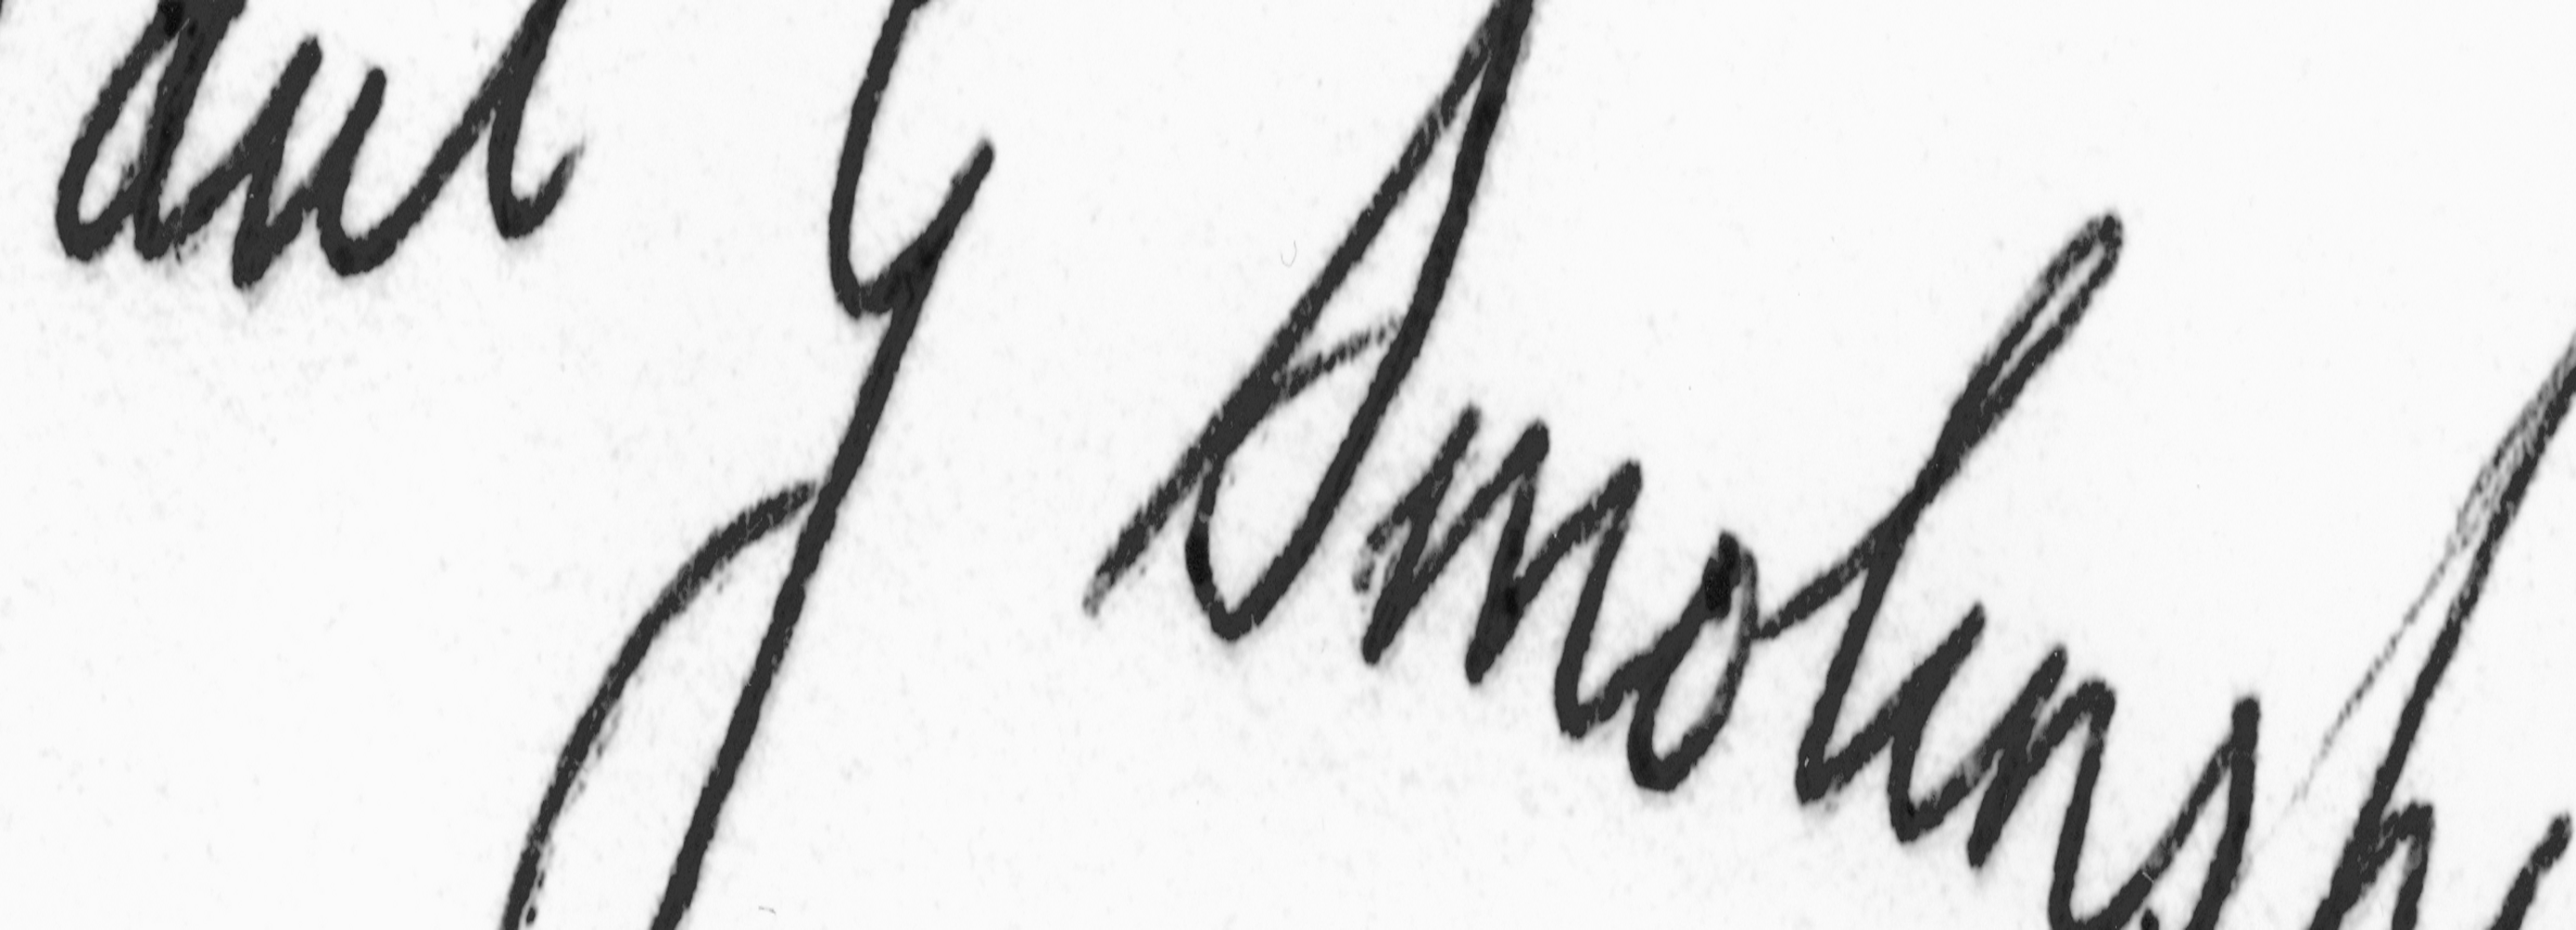 aul Y Smolinsk